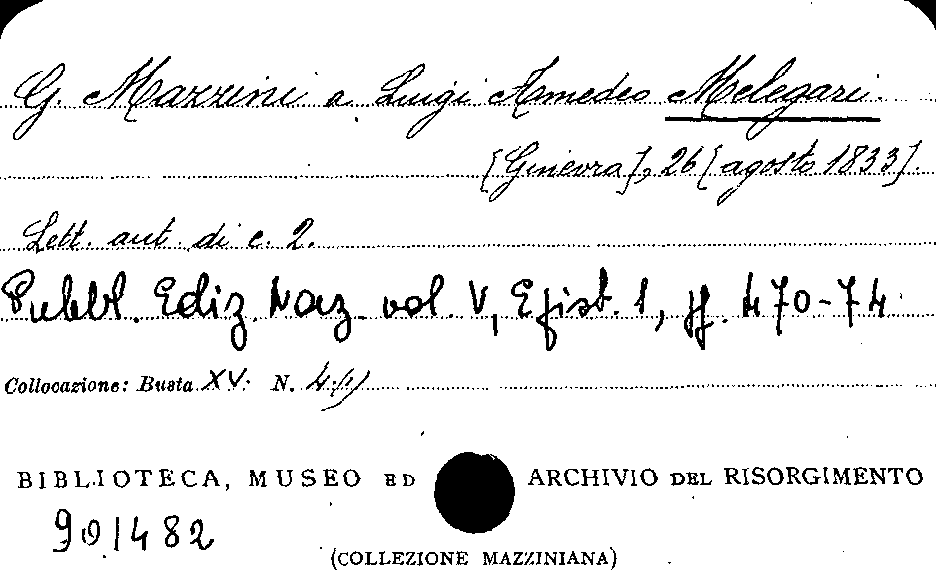 G. Mazzini a Luigi Amedeo Melegari.
[Ginevra], 26 [agosto 1833].
Lett. aut. di c. 2.
Pubbl. Ediz. Naz. vol. V, Epist. 1, pp. 470-74
Collocazione: Busta XV. N. 4(1)
BIBLIOTECA, MUSEO ED ARCHIVIO DEL RISORGIMENTO
901482
(COLLEZIONE MAZZINIANA)